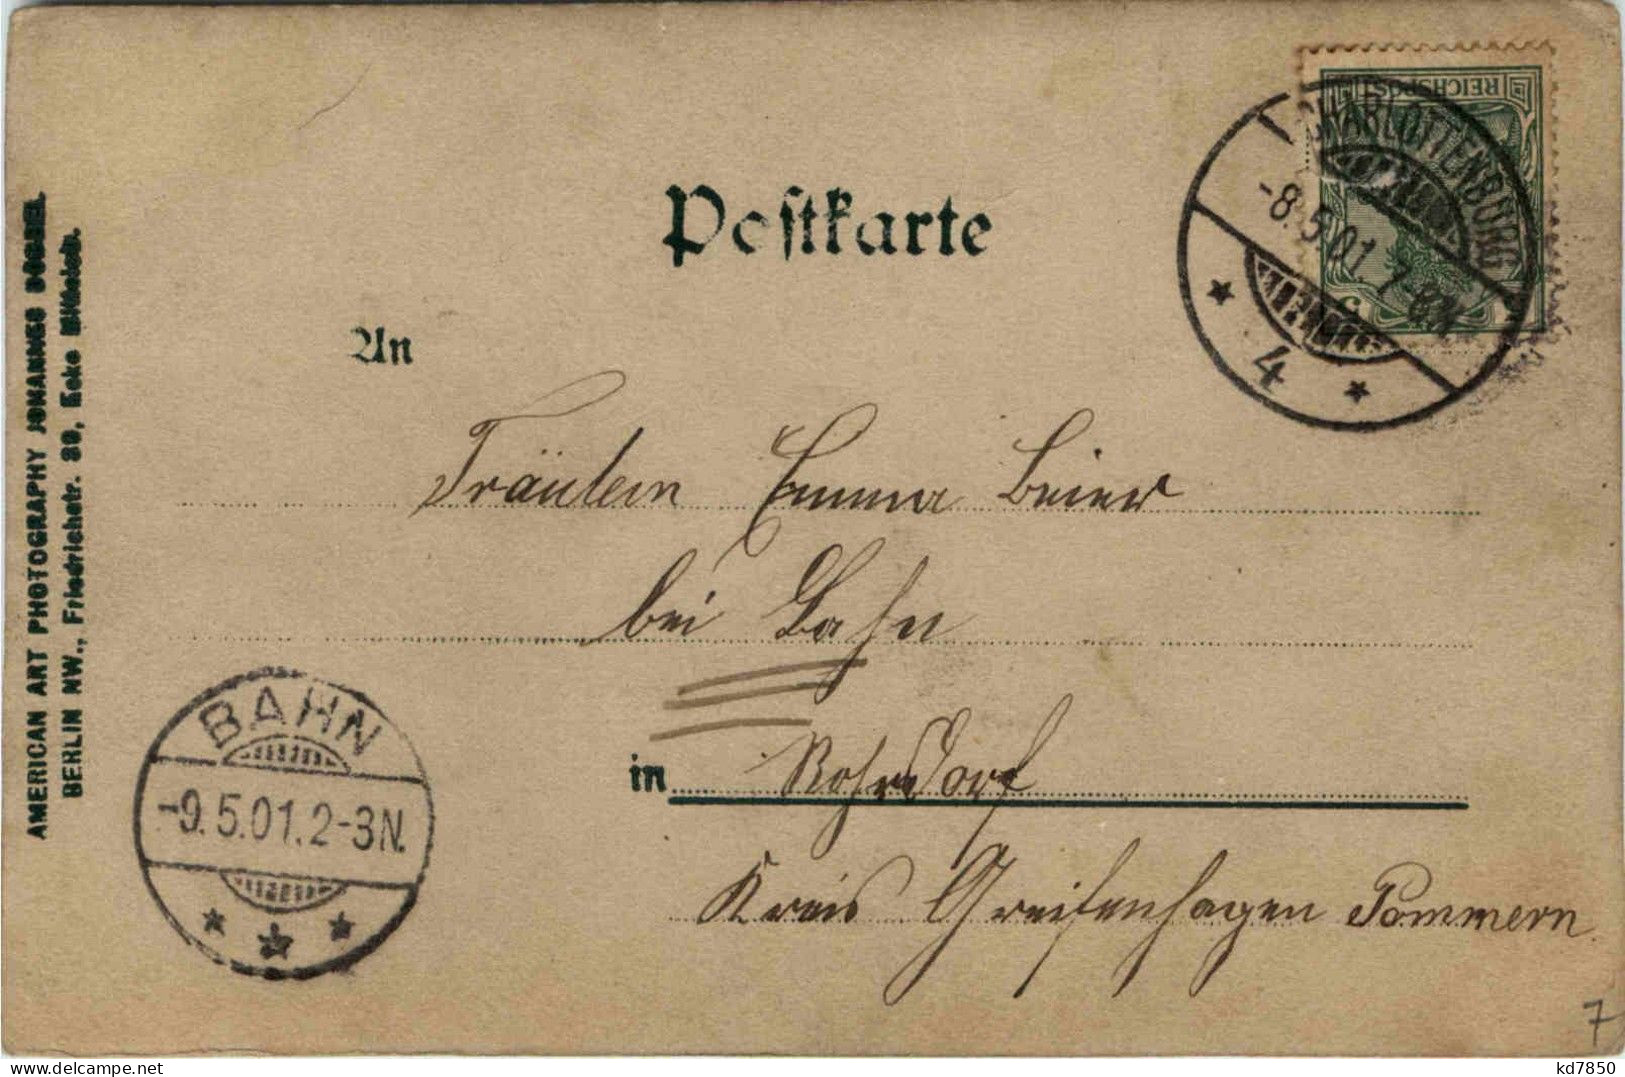 Postkarte
An
Fräulein Emma Beier
bei Bahn
in Rohrsdorf
Kreis Greifenhagen Pommern
AMERICAN ART PHOTOGRAPHY JOHANNES
BERLIN NW., Friedrichstr. Ecke
REICHSPOST
CHARLOTTENBURG
-8.5.01.7-8N.
4
BAHN
-9.5.01.2-3N.
7
kd7850